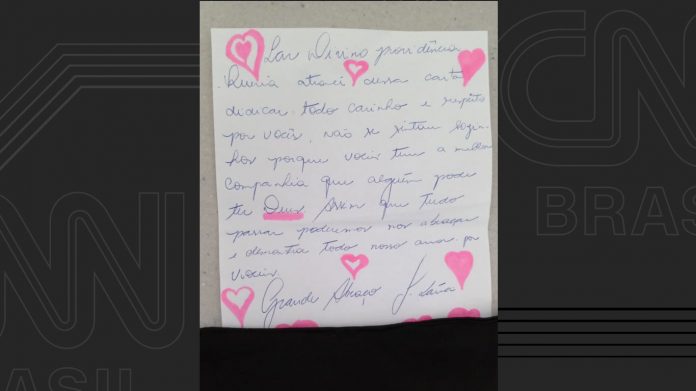 Lar Divino providência
Queria atraveí dessa carta
didicar todo carinho e respeito
por vocês, não se sintam sozin-
hos porque vocês tem a melhor
companhia que alguém pode
ter Deus assim que tudo
passar poderemos nos abraçar
e demostra todo nosso amor por
vocês
Grande Abraço
CNN
BRASIL
CNN
BRASIL